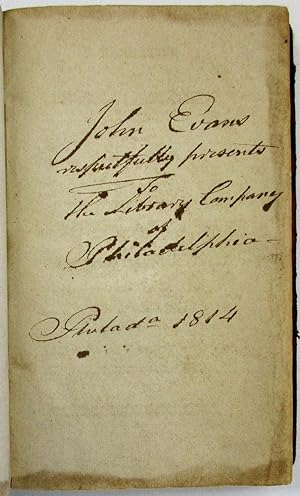 John Evans
respectfully presents
To
the Library Company
of
Philadelphia —
Philada 1814